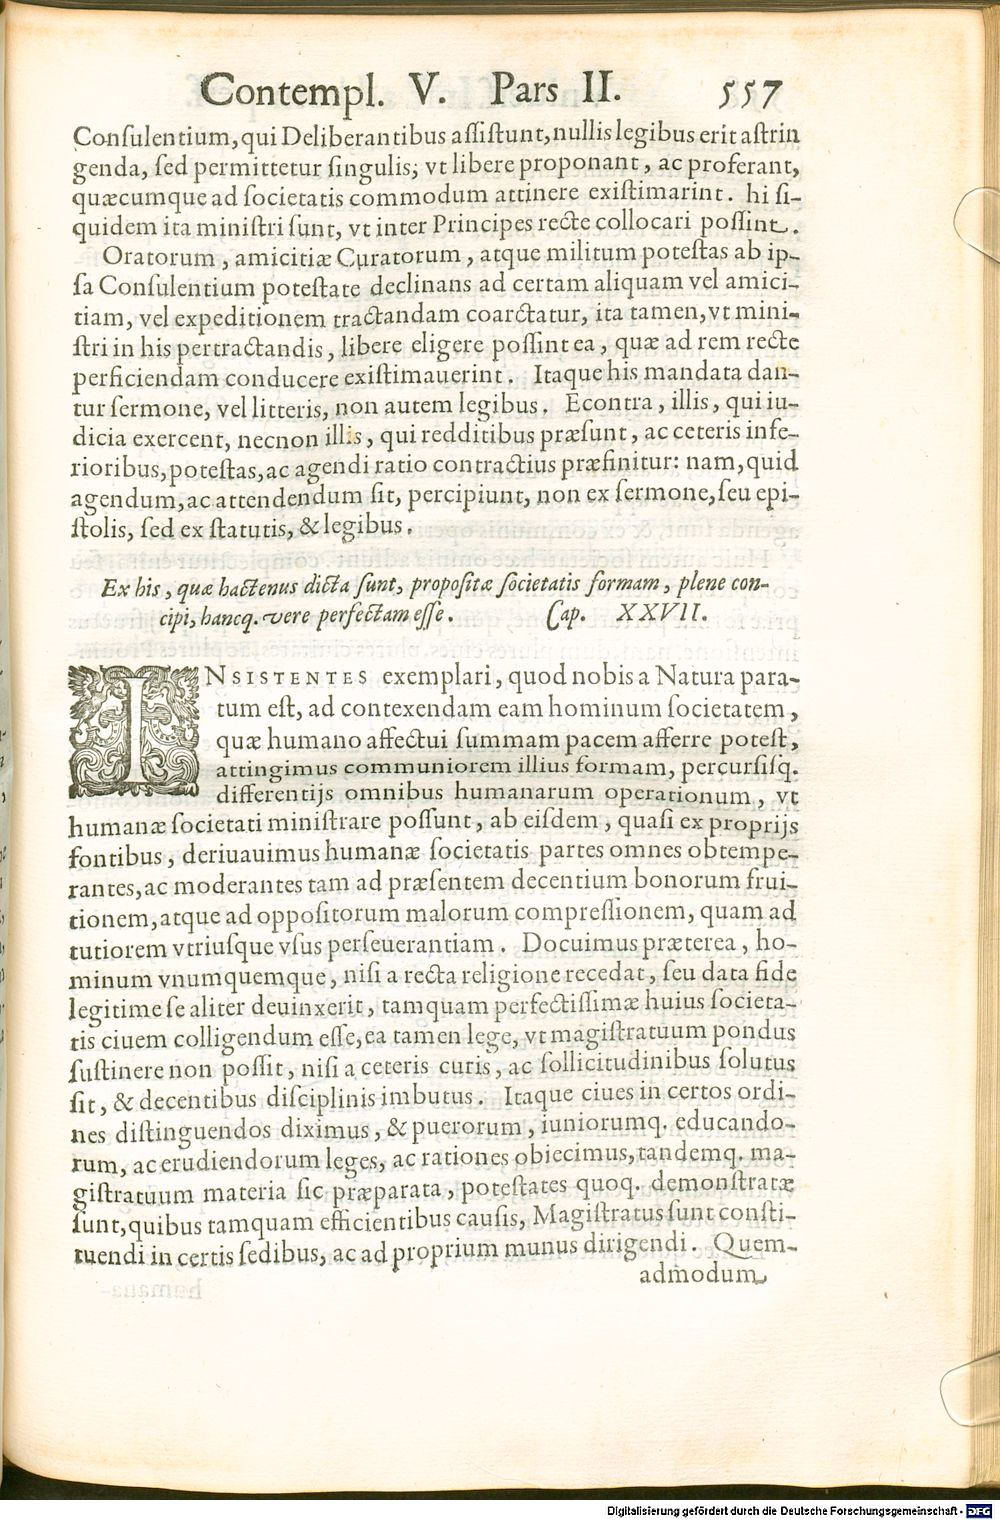 Contempl. V. Pars II. 557
Conſulentium, qui Deliberantibus aſſiſtunt, nullis legibus erit aſtrin
genda, ſed permittetur ſingulis; vt libere proponant, ac proferant,
quæcumque ad ſocietatis commodum attinere exiſtimarint. hi ſi-
quidem ita miniſtri ſunt, vt inter Principes recte collocari poſſint.
Oratorum, amicitiæ Curatorum, atque militum poteſtas ab ip-
ſa Conſulentium poteſtate declinans ad certam aliquam vel amici-
tiam, vel expeditionem tractandam coarctatur, ita tamen, vt mini-
ſtri in his pertractandis, libere eligere poſſint ea, quæ ad rem recte
perficiendam conducere exiſtimauerint. Itaque his mandata dan-
tur ſermone, vel litteris, non autem legibus. Econtra, illis, qui iu-
dicia exercent, necnon illis, qui redditibus præſunt, ac ceteris infe-
rioribus, poteſtas, ac agendi ratio contractius præfinitur: nam, quid
agendum, ac attendendum ſit, percipiunt, non ex ſermone, ſeu epi-
ſtolis, ſed ex ſtatutis, & legibus.
Ex his, quæ hactenus dicta ſunt, propoſitæ ſocietatis formam, plene con-
cipi, hancq. vere perfectam eſſe. Cap. XXVII.
INSISTENTES exemplari, quod nobis a Natura para-
tum eſt, ad contexendam eam hominum ſocietatem,
quæ humano affectui ſummam pacem afferre poteſt,
attingimus communiorem illius formam, percurſiſq.
differentijs omnibus humanarum operationum, vt
humanæ ſocietati miniſtrare poſſunt, ab eiſdem, quaſi ex proprijs
fontibus, deriuauimus humanæ ſocietatis partes omnes obtempe-
rantes, ac moderantes tam ad præſentem decentium bonorum frui-
tionem, atque ad oppoſitorum malorum compreſſionem, quam ad
tutiorem vtriuſque vſus perſeuerantiam. Docuimus præterea, ho-
minum vnumquemque, niſi a recta religione recedat, ſeu data fide
legitime ſe aliter deuinxerit, tamquam perfectiſſimæ huius ſocieta-
tis ciuem colligendum eſſe, ea tamen lege, vt magiſtratuum pondus
ſuſtinere non poſſit, niſi a ceteris curis, ac ſollicitudinibus ſolutus
ſit, & decentibus diſciplinis imbutus. Itaque ciues in certos ordi-
nes diſtinguendos diximus, & puerorum, iuniorumq. educando-
rum, ac erudiendorum leges, ac rationes obiecimus, tandemq. ma-
giſtratuum materia ſic præparata, poteſtates quoq. demonſtratæ
ſunt, quibus tamquam efficientibus cauſis, Magiſtratus ſunt conſti-
tuendi in certis ſedibus, ac ad proprium munus dirigendi. Quem-
admodum
Digitalisierung gefördert durch die Deutsche Forschungsgemeinschaft - DFG